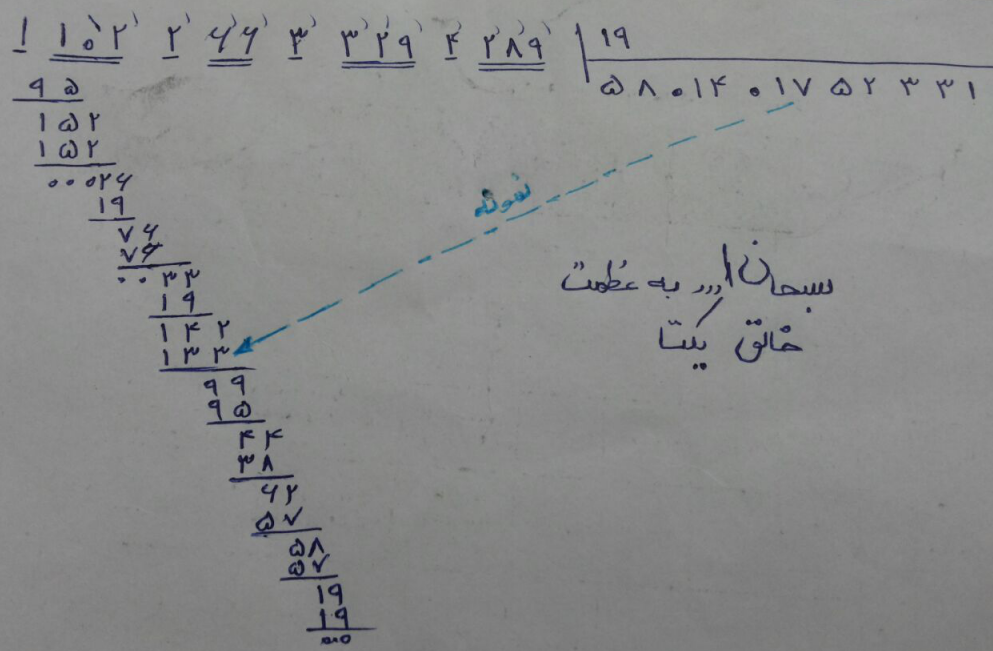 ۱ ۱۰۲ ۲ ۶۶ ۳ ۳۲۹ ۴ ۲۸۹ ۱۹
۵۸۰۱۴۰۱۷۵۲۳۳۱
۹۵
۱۵۲
۱۵۲
۰۰۰۲۶
۱۹
۷۶
۷۶
۰۰۳۳
۱۹
۱۴۲
۱۳۳
۹۹
۹۵
۴۴
۳۸
۶۲
۵۷
۵۸
۵۷
۱۹
۱۹
۰۰۰
نمونه
سبحان الله به عظمت
خالق یکتا